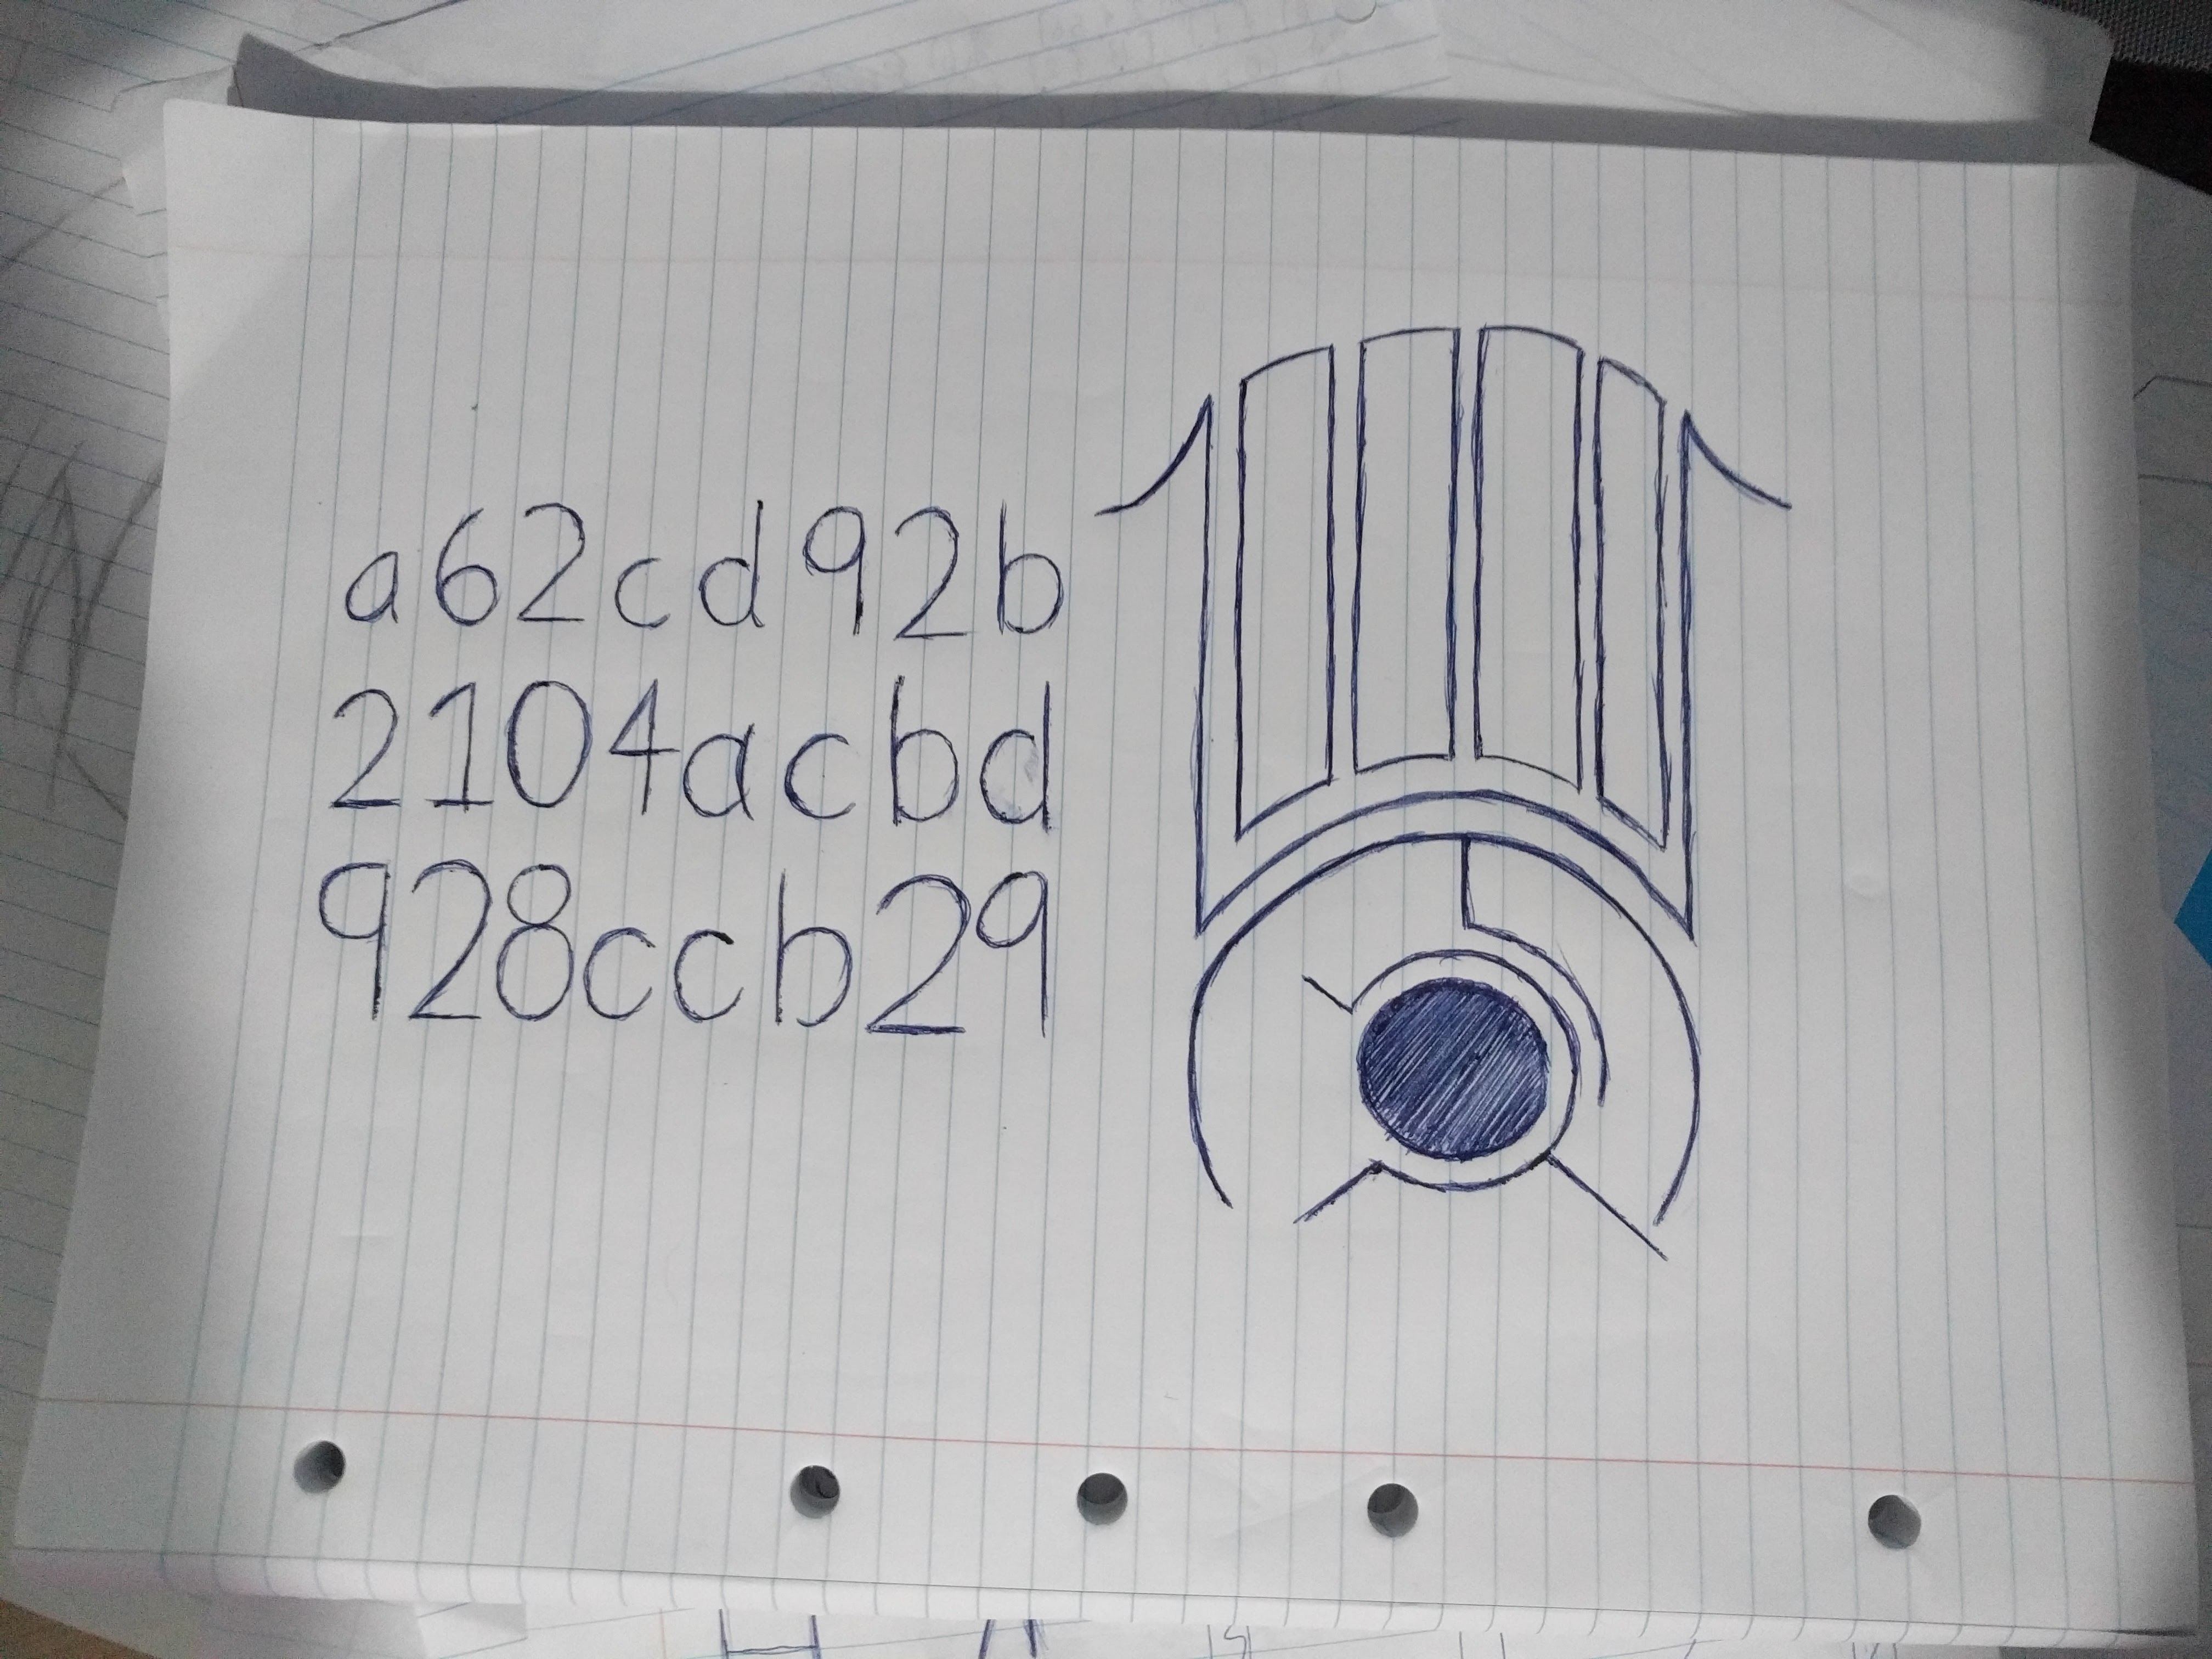 a62cd92b
2104acbd
928ccb29